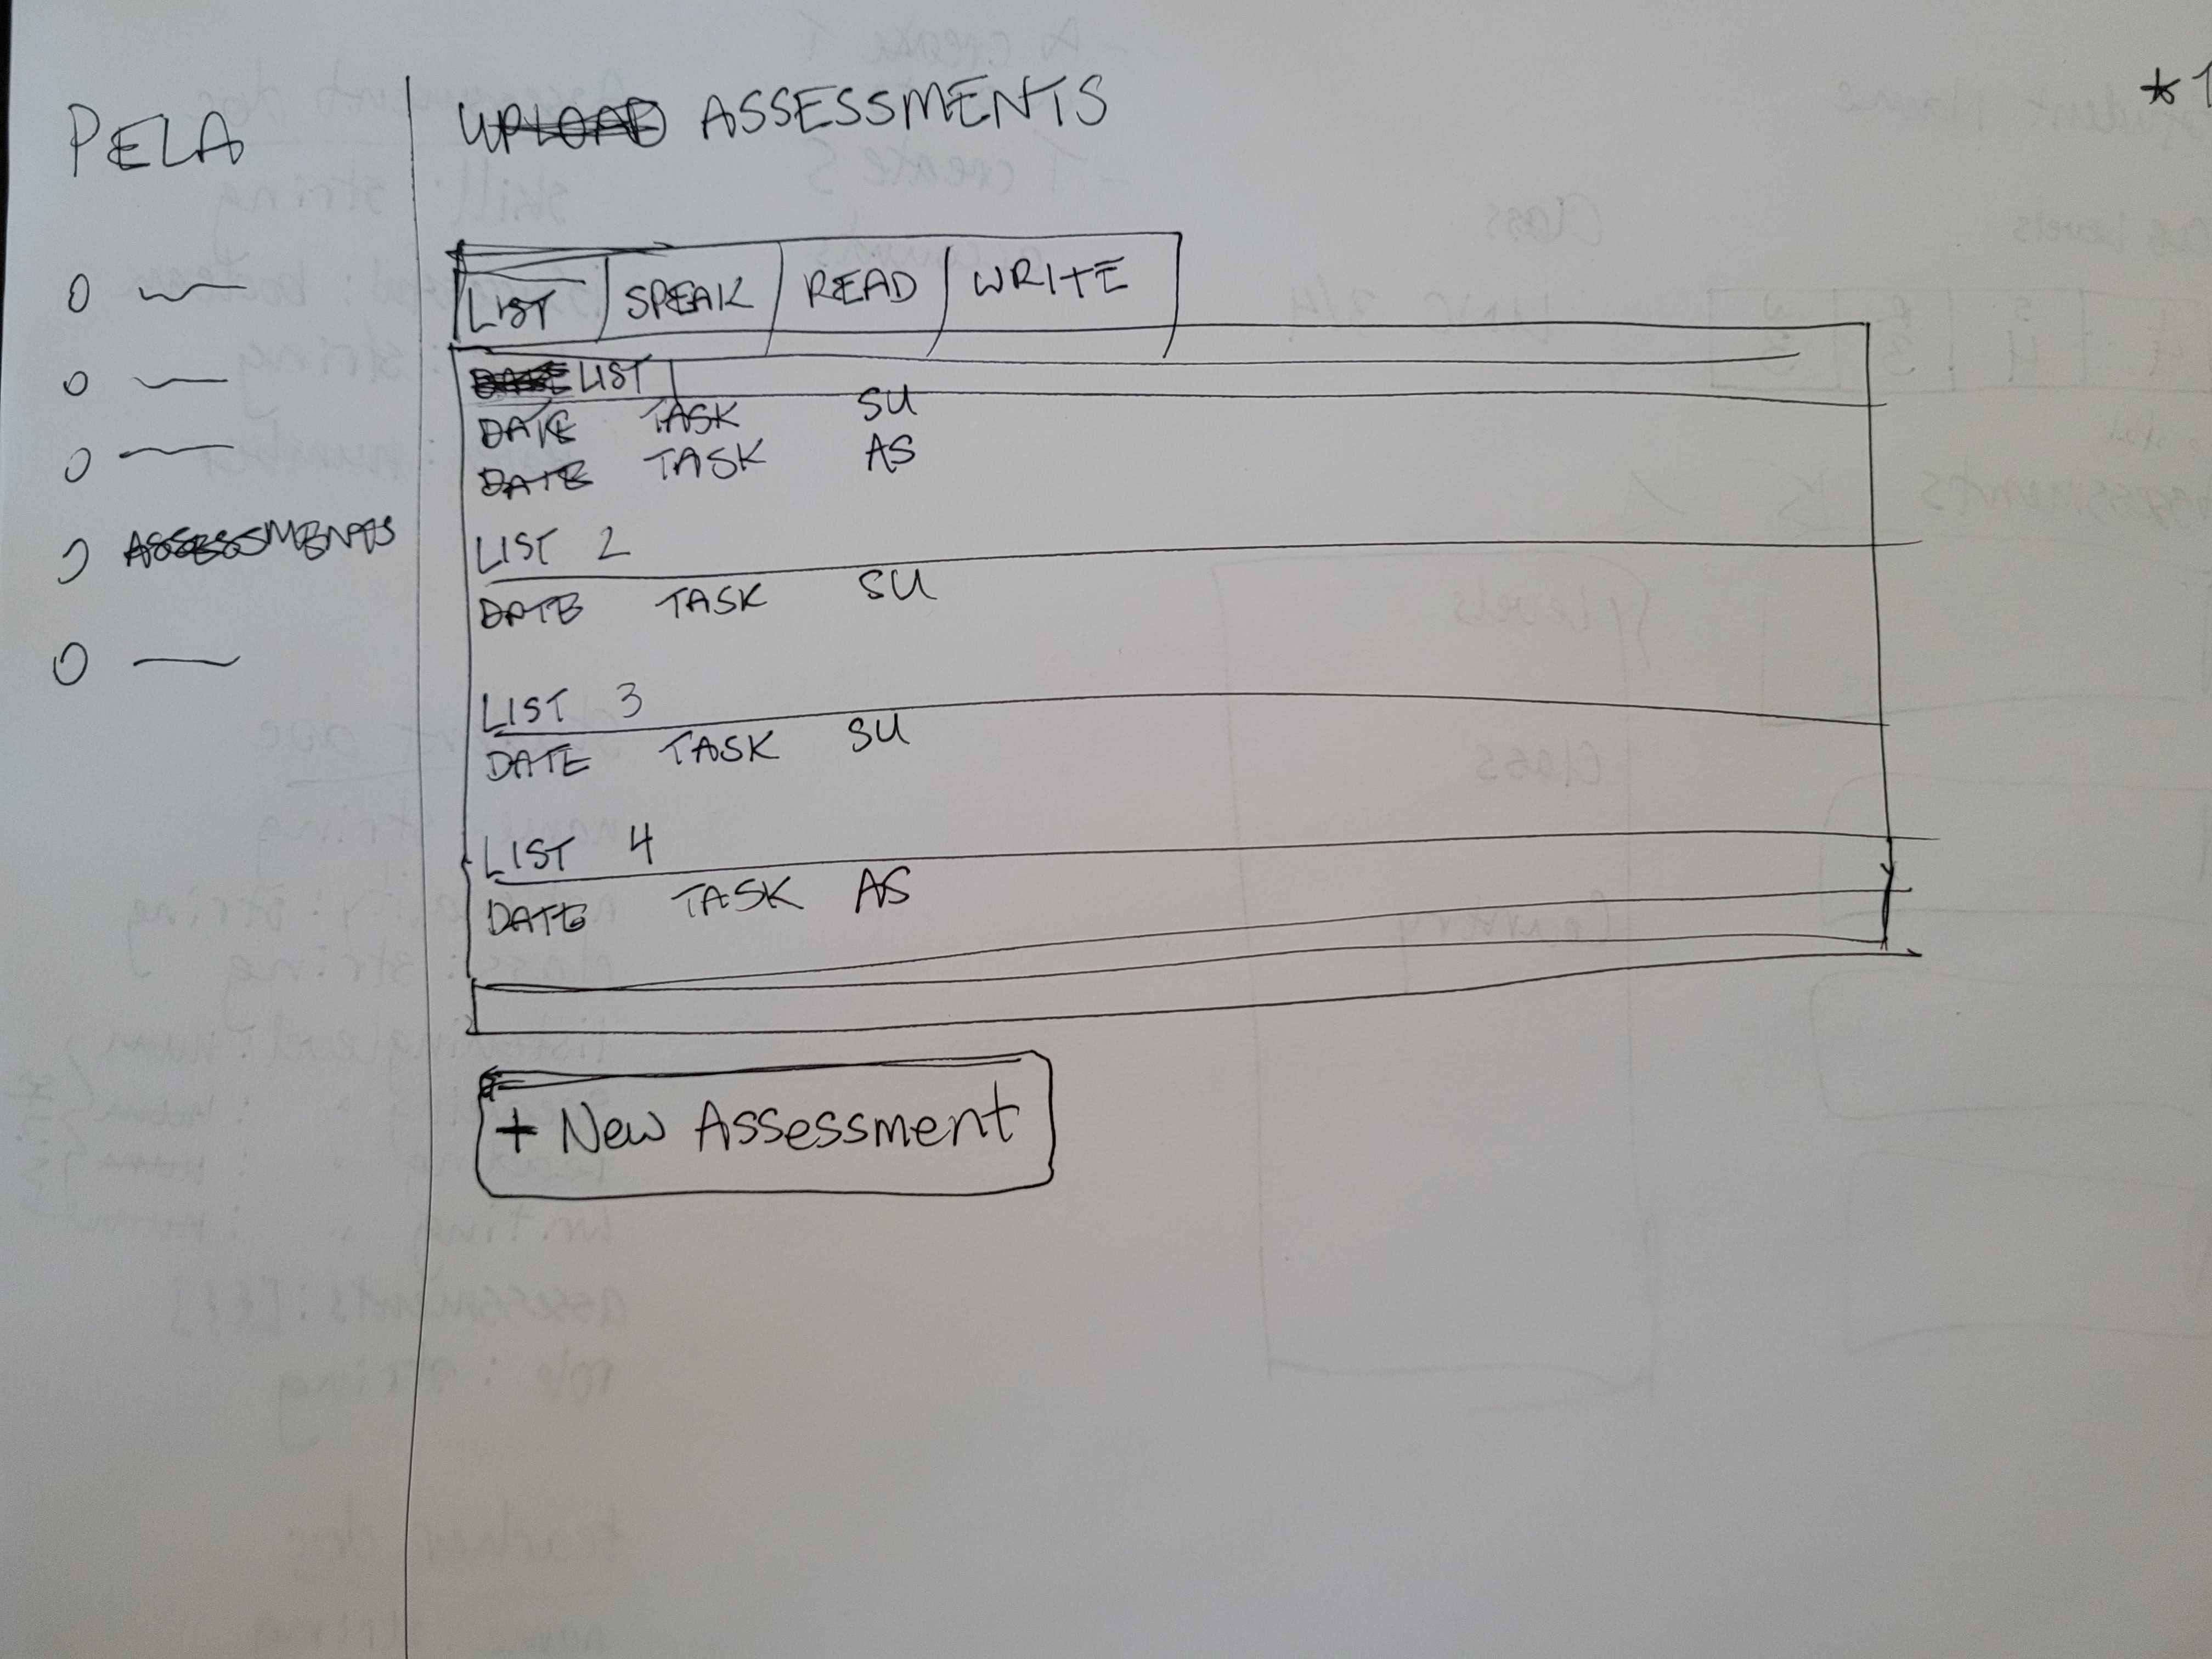 PELA
UPLOAD ASSESSMENTS
*1
LIST SPEAK READ WRITE
LIST
DATE TASK SU
DATE TASK AS
ASSESSMENTS
LIST 2
DATE TASK SU
LIST 3
DATE TASK SU
LIST 4
DATE TASK AS
+ New Assessment